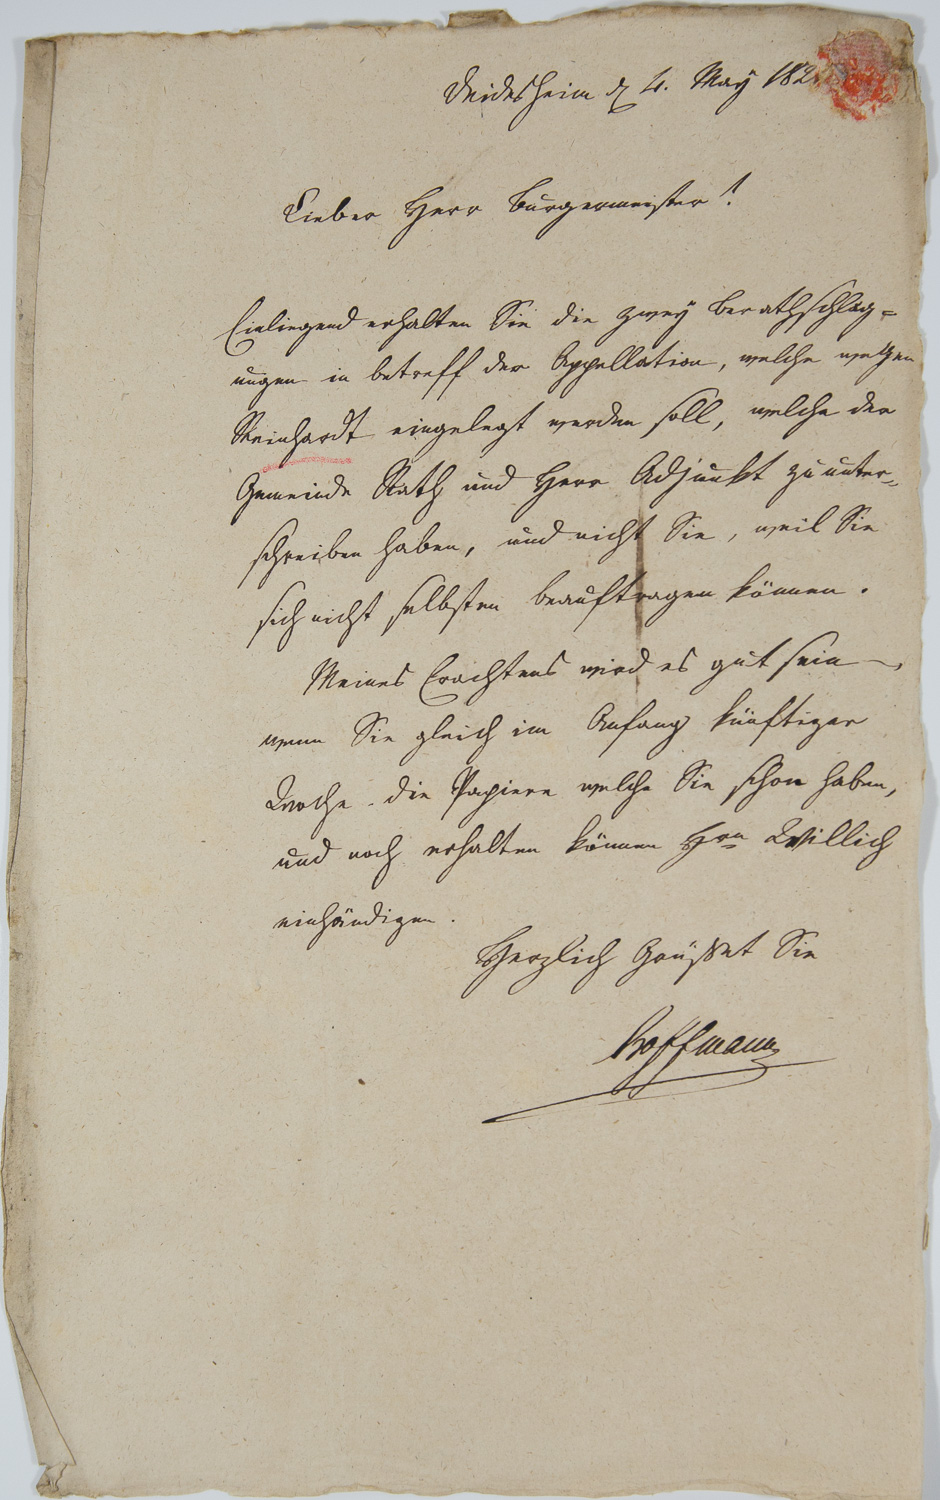 Deidesheim d 4. May 182
Lieber Herr Burgermeister!
Einliegend erhalten Sie die zwey berathschlag=
ungen in betreff der Appellation, welche wegen
Reinhardt eingelegt werden soll, welche der
Gemeinde Rath und Herr Adjunkt zu unter=
schreiben haben, und nicht Sie, weil Sie
sich nicht selbsten beauftragen können.
Meines Erachtens wird es gut sein,
wenn Sie gleich im Anfang künftiger
Woche die Papiere welche Sie schon haben,
und noch erhalten können Hrn Willich
einhändigen.
Herzlich Grüsset Sie
Hoffmann